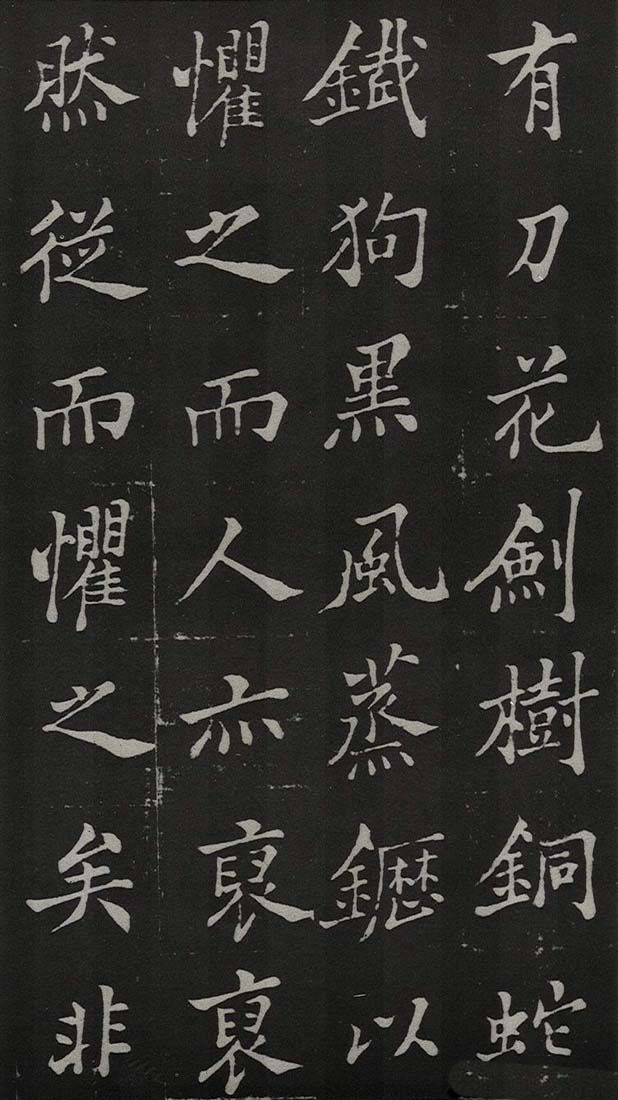 有刀花劍樹銅蛇
鐵狗黑風蒸䥶以
懼之而人亦裒裒
然從而懼之矣非